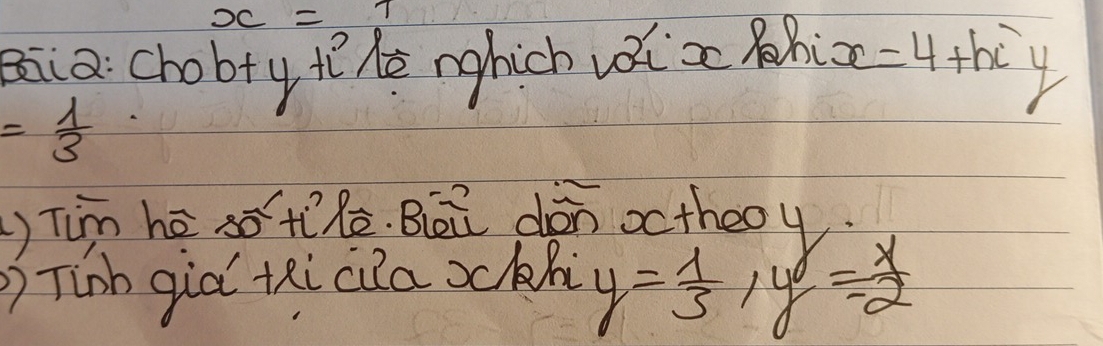 x =
Bài 2: Cho b+ y tỉ lệ nghịch với x khi x = 4 thì y
= 1/3.
) Tìm hệ số tỉ lệ. Biểu diễn x theo y.
) Tính giá trị của x khi y = 1/3, y =